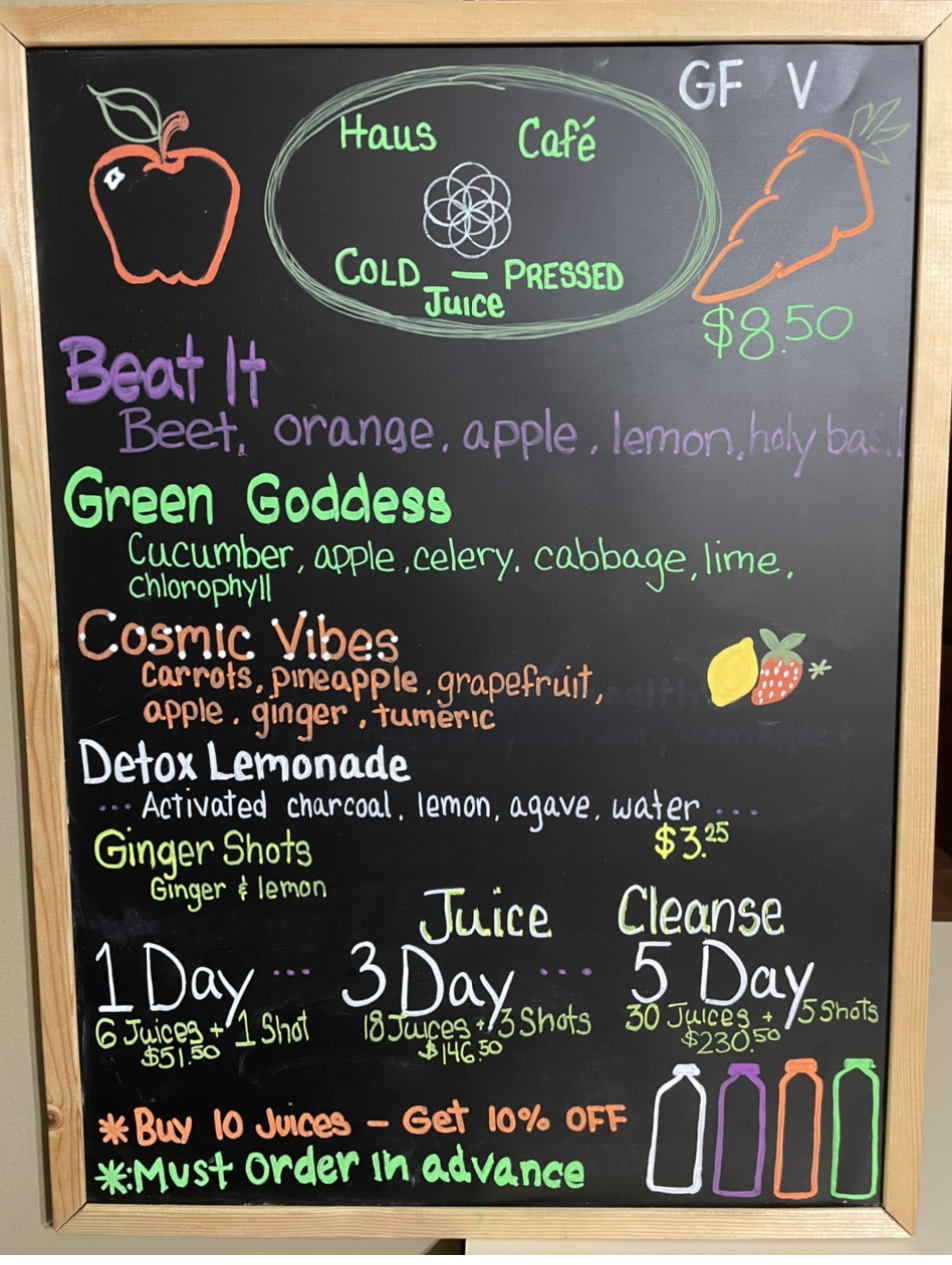 GF V
Haus Café
COLD — PRESSED
Juice
$8.50
Beat It
Beet, orange, apple, lemon, holy basil
Green Goddess
Cucumber, apple, celery, cabbage, lime,
chlorophyll
Cosmic Vibes
Carrots, pineapple, grapefruit,
apple, ginger, tumeric
Detox Lemonade
... Activated charcoal, lemon, agave, water ...
Ginger Shots $3.25
Ginger & lemon
Juice Cleanse
1 Day ... 3 Day ... 5 Day
6 Juices + 1 Shot 18 Juices + 3 Shots 30 Juices + 5 Shots
$51.50 $146.50 $230.50
*Buy 10 Juices — Get 10% OFF
*:Must Order In advance